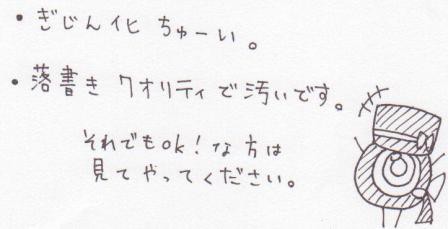 ・ぎじんイヒ ちゅーい。
・落書き クオリティで汚いです。
それでもok!な方は
見てやってください。